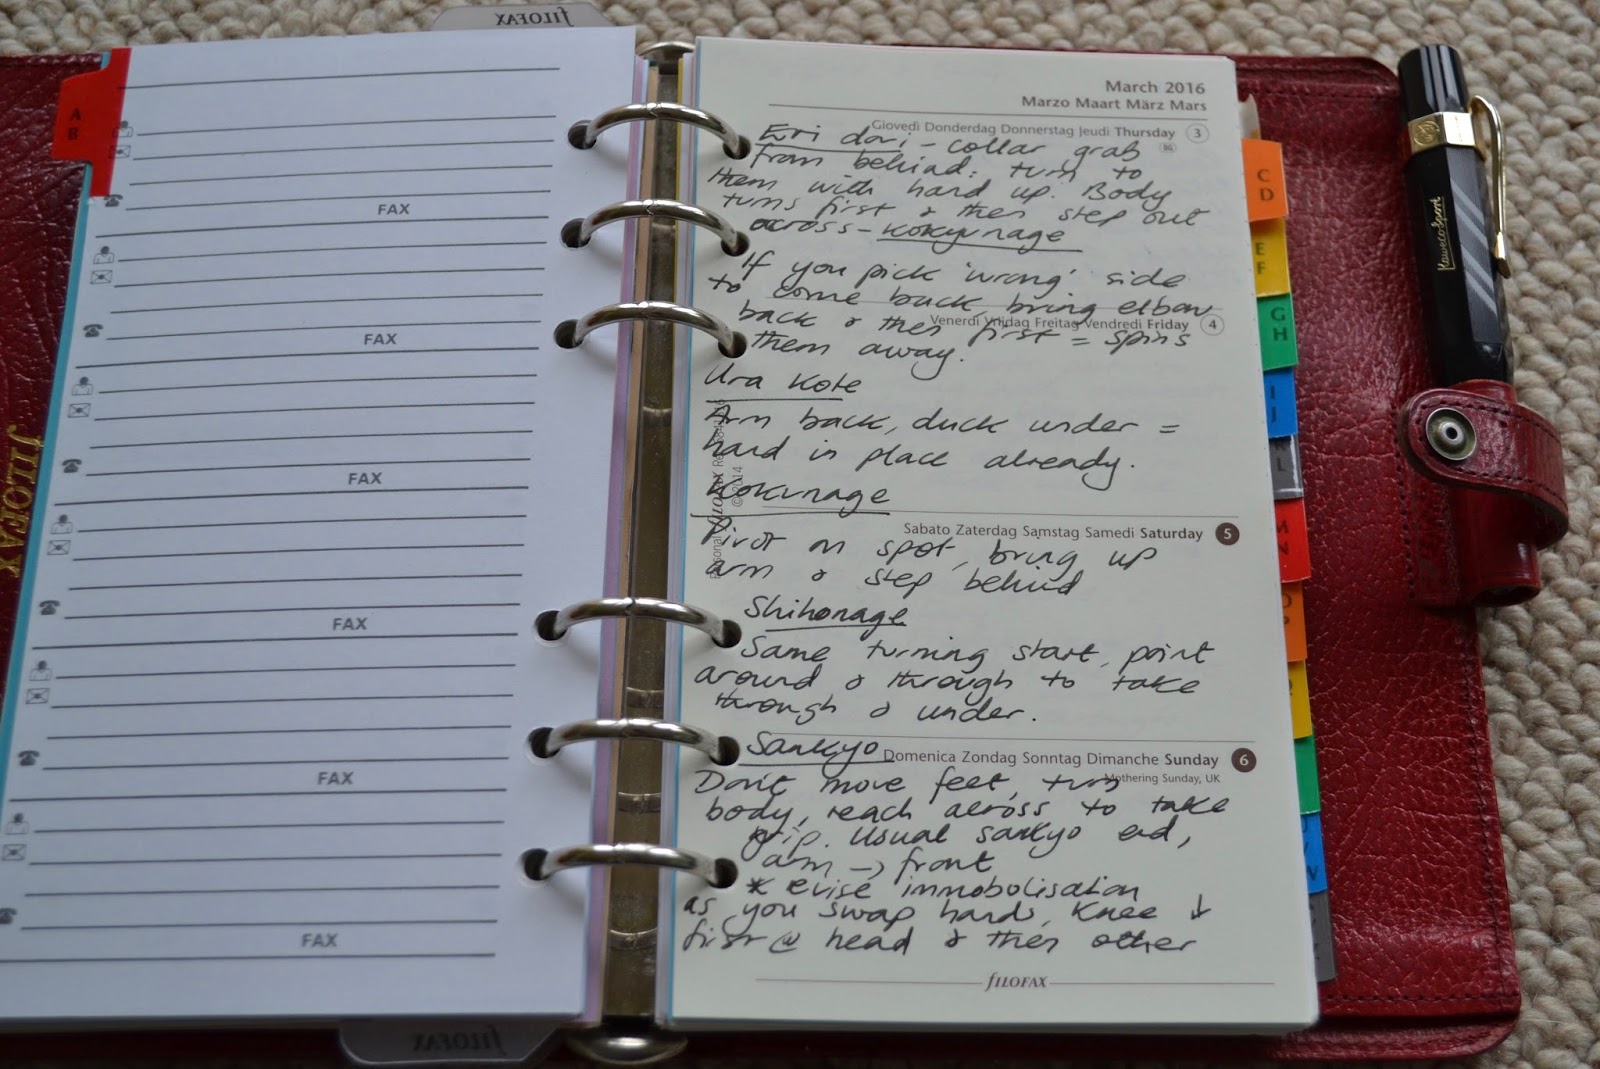 fILOFAX
A
B
FAX
FAX
FAX
FAX
FAX
FAX
fILOFAX
fILOFAX
March 2016
Marzo Maart März Mars
Giovedì Donderdag Donnerstag Jeudi Thursday 3
Eri dori - collar grab
from behind: turn to
them with hand up. Body
turns first & then step out
across - kokyunage
If you pick 'wrong' side
to come back, bring elbow
Venerdì Vrijdag Freitag Vendredi Friday 4
back & then first = spins
them away.
Ura Kote
Arm back, duck under =
hand in place already.
Kokunage
Personal fILOFAX
© 2014
Sabato Zaterdag Samstag Samedi Saturday 5
Pivot on spot, bring up
arm & step behind
Shihonage
Same turning start, point
around & through to take
through & under.
Sankyo
Domenica Zondag Sonntag Dimanche Sunday 6
Mothering Sunday, UK
Don't move feet, turn
body, reach across to take
grip. Usual sankyo end,
arm -> front
* evise immobolisation
as you swap hands, knee ↓
first @ head & then other
fILOFAX
C
D
E
F
G
H
I
J
L
M
N
O
P
W
Kaweco Sport